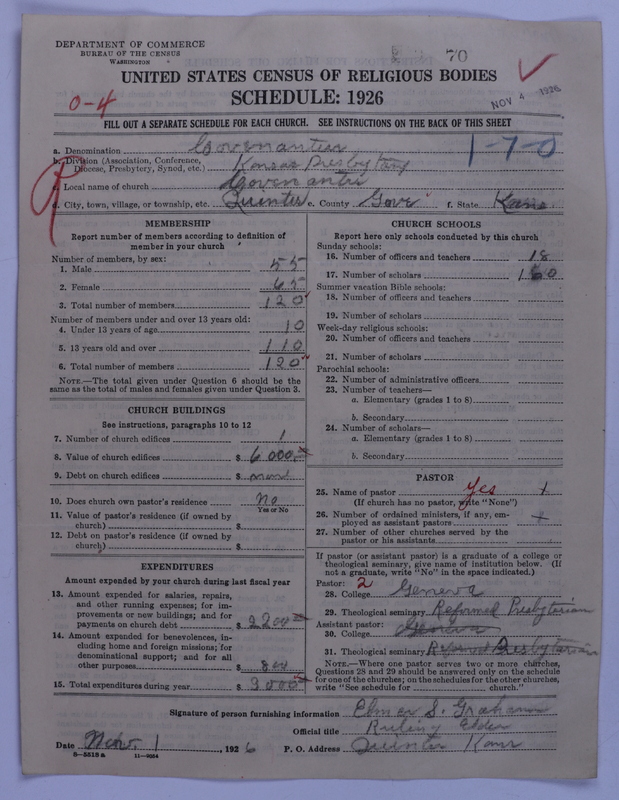 DEPARTMENT OF COMMERCE
BUREAU OF THE CENSUS
WASHINGTON
70
UNITED STATES CENSUS OF RELIGIOUS BODIES
SCHEDULE: 1926
NOV 4 1926
0-4
FILL OUT A SEPARATE SCHEDULE FOR EACH CHURCH. SEE INSTRUCTIONS ON THE BACK OF THIS SHEET
1-7-0
a. Denomination Covenanter
b. Division (Association, Conference, Diocese, Presbytery, Synod, etc.) Kansas Presbytery
c. Local name of church
d. City, town, village, or township, etc. Quinter e. County Gove f. State Kans
MEMBERSHIP
Report number of members according to definition of
member in your church
Number of members, by sex:
1. Male 55
2. Female 65
3. Total number of members 120
Number of members under and over 13 years old:
4. Under 13 years of age 10
5. 13 years old and over 110
6. Total number of members 120
NOTE.—The total given under Question 6 should be the
same as the total of males and females given under Question 3.
CHURCH BUILDINGS
See instructions, paragraphs 10 to 12
7. Number of church edifices 1
8. Value of church edifices $ 6000
9. Debt on church edifices $ none
10. Does church own pastor's residence No
Yes or No
11. Value of pastor's residence (if owned by
church) $
12. Debt on pastor's residence (if owned by
church) $
EXPENDITURES
Amount expended by your church during last fiscal year
13. Amount expended for salaries, repairs,
and other running expenses; for im-
provements or new buildings; and for
payments on church debt $ 2200
14. Amount expended for benevolences, in-
cluding home and foreign missions; for
denominational support; and for all
other purposes $ 800
15. Total expenditures during year $ 3000
CHURCH SCHOOLS
Report here only schools conducted by this church
Sunday schools:
16. Number of officers and teachers 18
17. Number of scholars 160
Summer vacation Bible schools:
18. Number of officers and teachers
19. Number of scholars
Week-day religious schools:
20. Number of officers and teachers
21. Number of scholars
Parochial schools:
22. Number of administrative officers
23. Number of teachers—
a. Elementary (grades 1 to 8)
b. Secondary
24. Number of scholars—
a. Elementary (grades 1 to 8)
b. Secondary
PASTOR
25. Name of pastor Yes
(If church has no pastor, write "None")
26. Number of ordained ministers, if any, em-
ployed as assistant pastors
27. Number of other churches served by the
pastor or his assistants
If pastor (or assistant pastor) is a graduate of a college or
theological seminary, give name of institution below. (If
not a graduate, write "No" in the space indicated.)
Pastor: 2
28. College Geneva
29. Theological seminary Reformed Presbyterian
Assistant pastor:
30. College Geneva
31. Theological seminary Reformed Presbyterian
NOTE.—Where one pastor serves two or more churches,
Questions 28 and 29 should be answered only on the schedule
for one of the churches; on the schedules for the other churches,
write "See schedule for church."
Signature of person furnishing information Elmer S. Graham
Official title Ruling Elder
Date Nov. 1, 1926 P. O. Address Quinter Kans
8—5518 a 11—9054